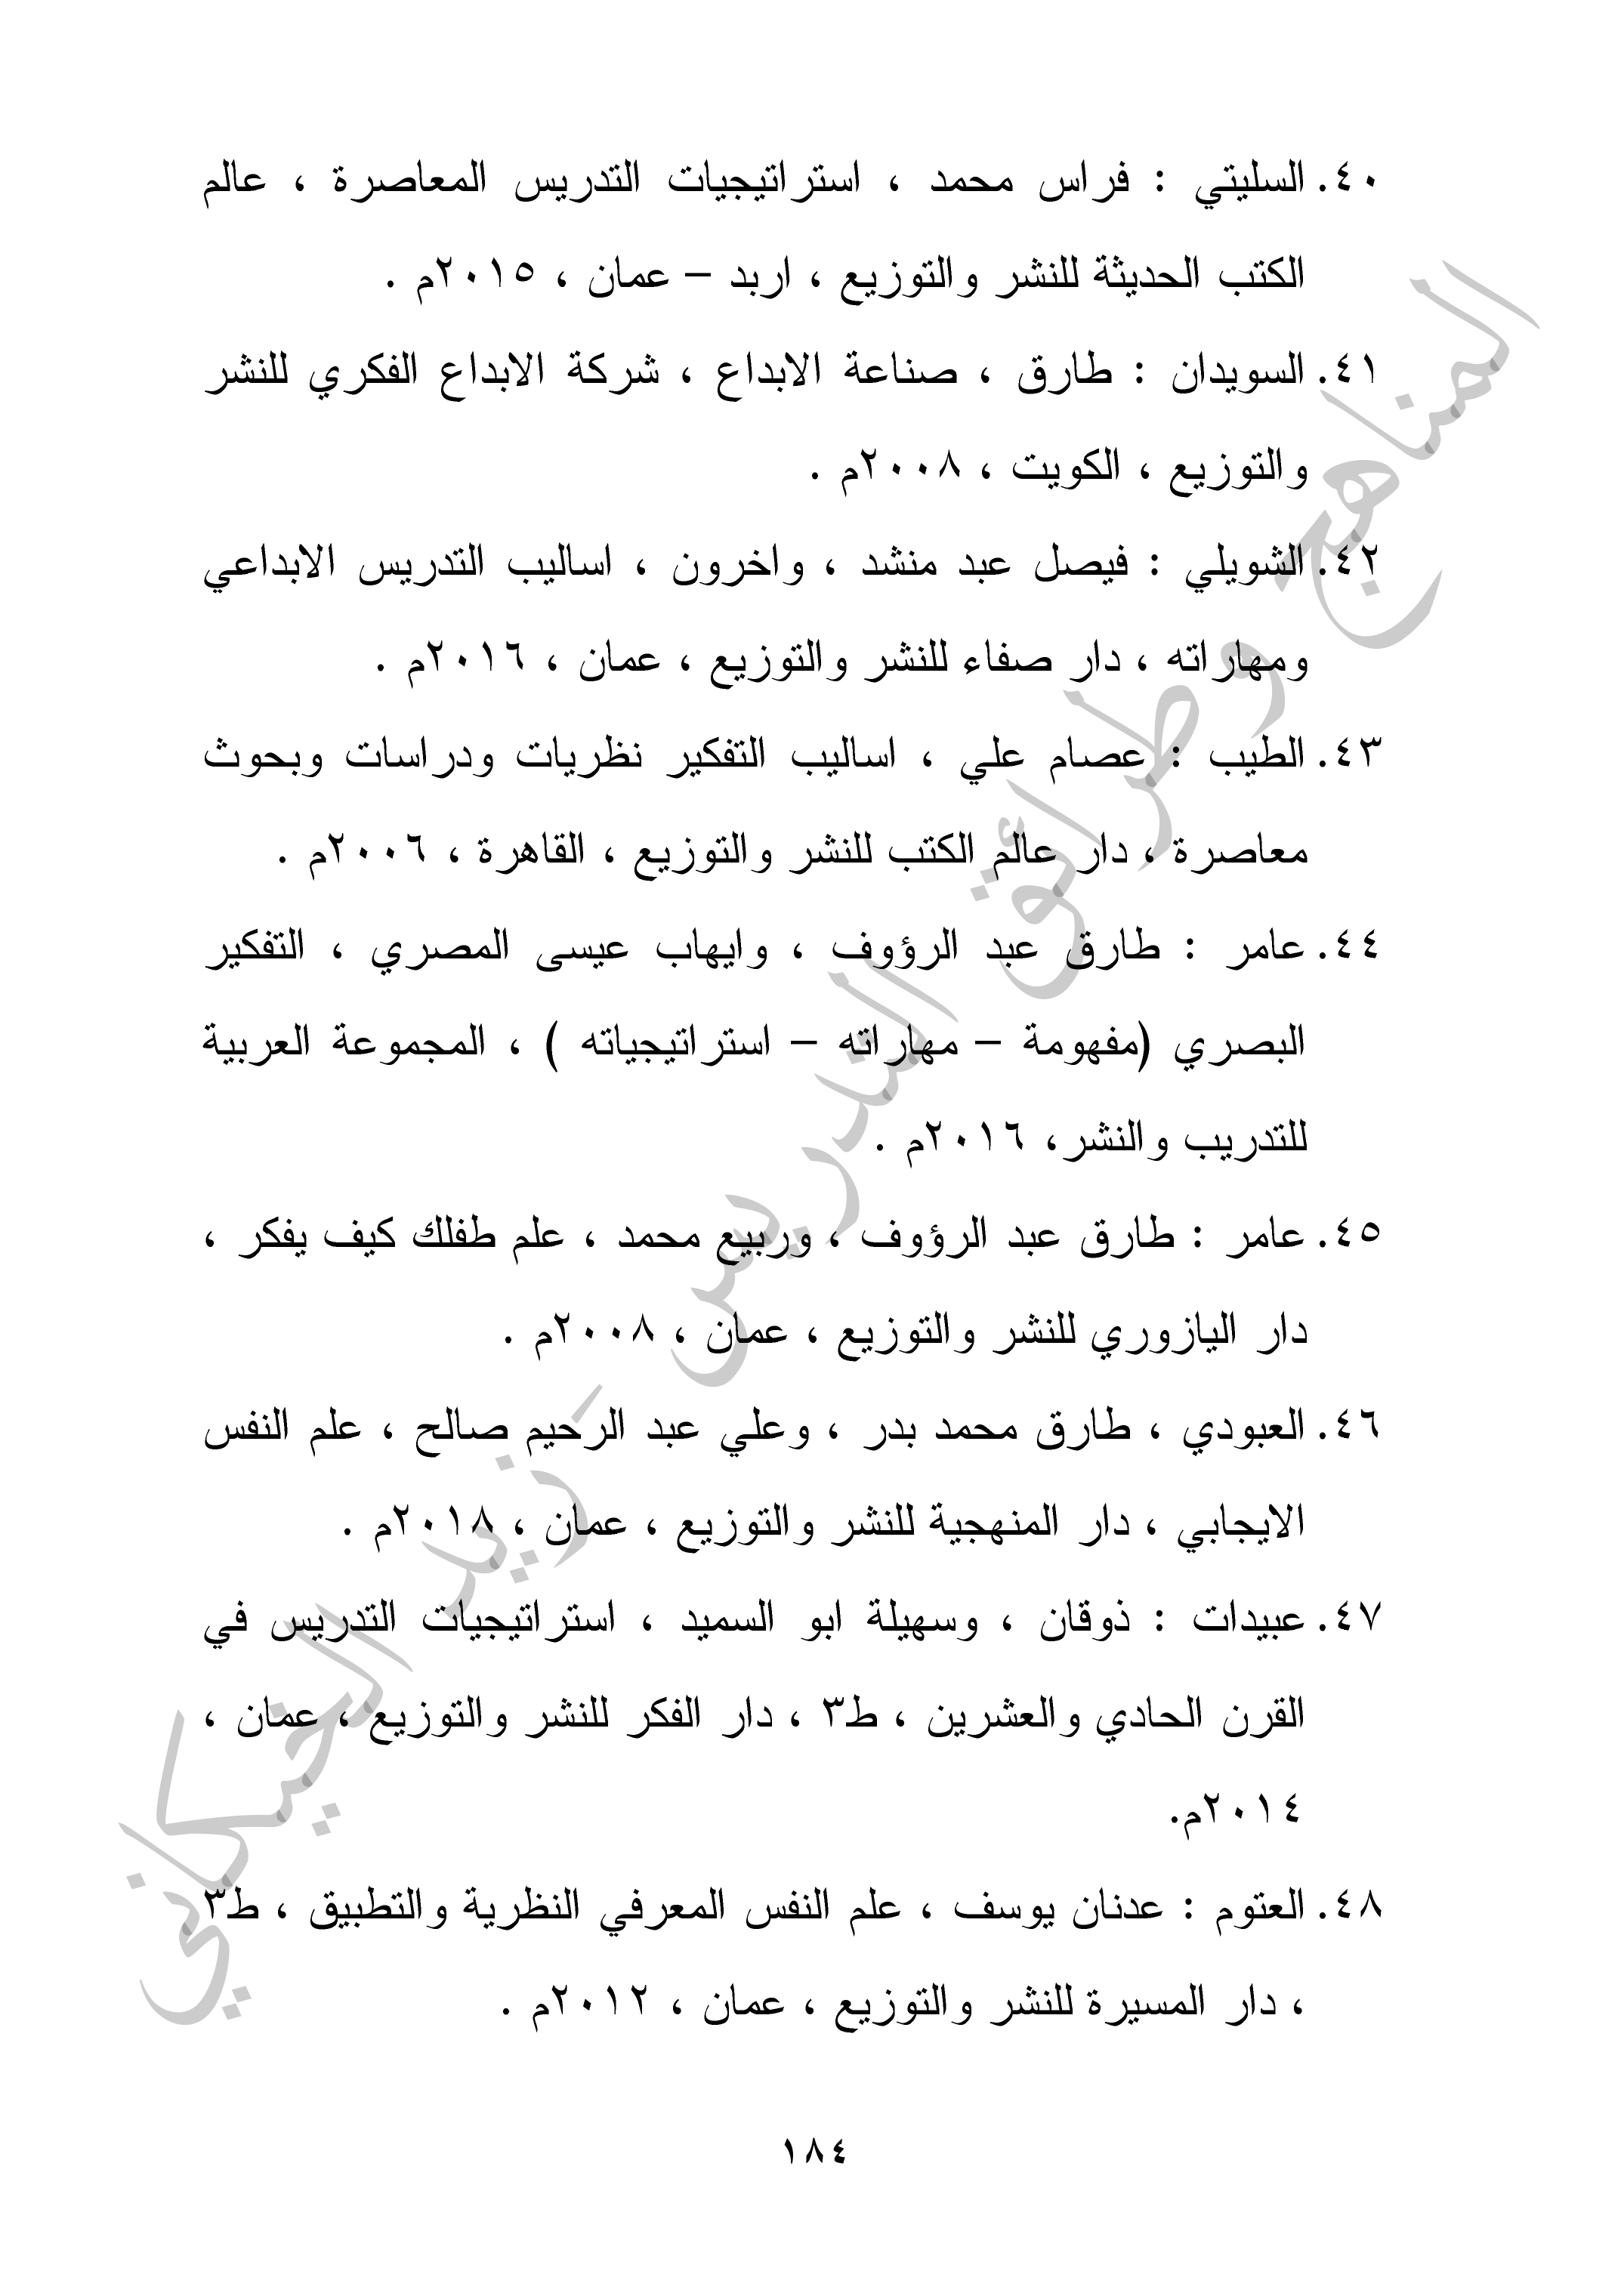 ٤٠. السليتي : فراس محمد ، استراتيجيات التدريس المعاصرة ، عالم
الكتب الحديثة للنشر والتوزيع ، اربد – عمان ، ٢٠١٥م .
٤١. السويدان : طارق ، صناعة الابداع ، شركة الابداع الفكري للنشر
والتوزيع ، الكويت ، ٢٠٠٨م .
٤٢. الشويلي : فيصل عبد منشد ، واخرون ، اساليب التدريس الابداعي
ومهاراته ، دار صفاء للنشر والتوزيع ، عمان ، ٢٠١٦م .
٤٣. الطيب : عصام علي ، اساليب التفكير نظريات ودراسات وبحوث
معاصرة ، دار عالم الكتب للنشر والتوزيع ، القاهرة ، ٢٠٠٦م .
٤٤. عامر : طارق عبد الرؤوف ، وايهاب عيسى المصري ، التفكير
البصري (مفهومة – مهاراته – استراتيجياته ) ، المجموعة العربية
للتدريب والنشر، ٢٠١٦م .
٤٥. عامر : طارق عبد الرؤوف ، وربيع محمد ، علم طفلك كيف يفكر ،
دار اليازوري للنشر والتوزيع ، عمان ، ٢٠٠٨م .
٤٦. العبودي ، طارق محمد بدر ، وعلي عبد الرحيم صالح ، علم النفس
الايجابي ، دار المنهجية للنشر والتوزيع ، عمان ، ٢٠١٨م .
٤٧. عبيدات : ذوقان ، وسهيلة ابو السميد ، استراتيجيات التدريس في
القرن الحادي والعشرين ، ط٣ ، دار الفكر للنشر والتوزيع ، عمان ،
٢٠١٤م.
٤٨. العتوم : عدنان يوسف ، علم النفس المعرفي النظرية والتطبيق ، ط٣
، دار المسيرة للنشر والتوزيع ، عمان ، ٢٠١٢م .
١٨٤
المناهج وطرائق التدريس - زيد الخيكاني